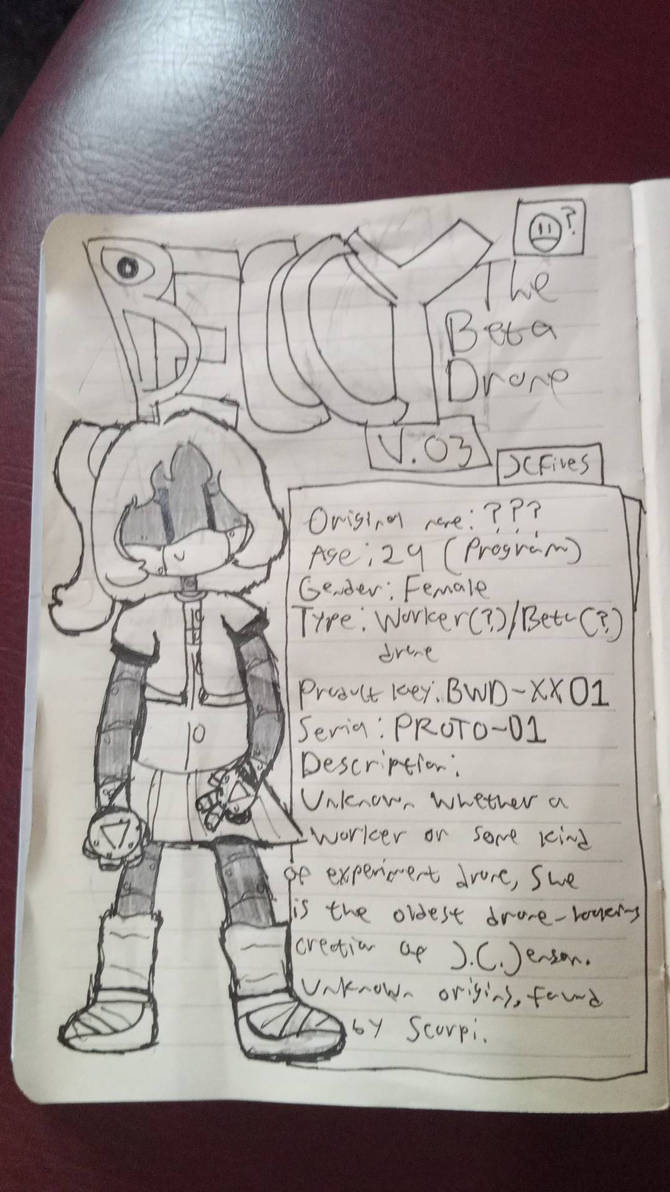 BECCY
?
The
Beta
Drone
V.03
JCFiles
Original name: ???
Age: 24 (Program)
Gender: Female
Type: Worker(?)/Beta(?)
drone
Product key: BWD-XX01
Serial: PROTO-01
Description:
Unknown whether a
worker or some kind
of experiment drone, She
is the oldest drone-looking
creation of J.C.Jenson.
Unknown origins, found
by Scorpi.